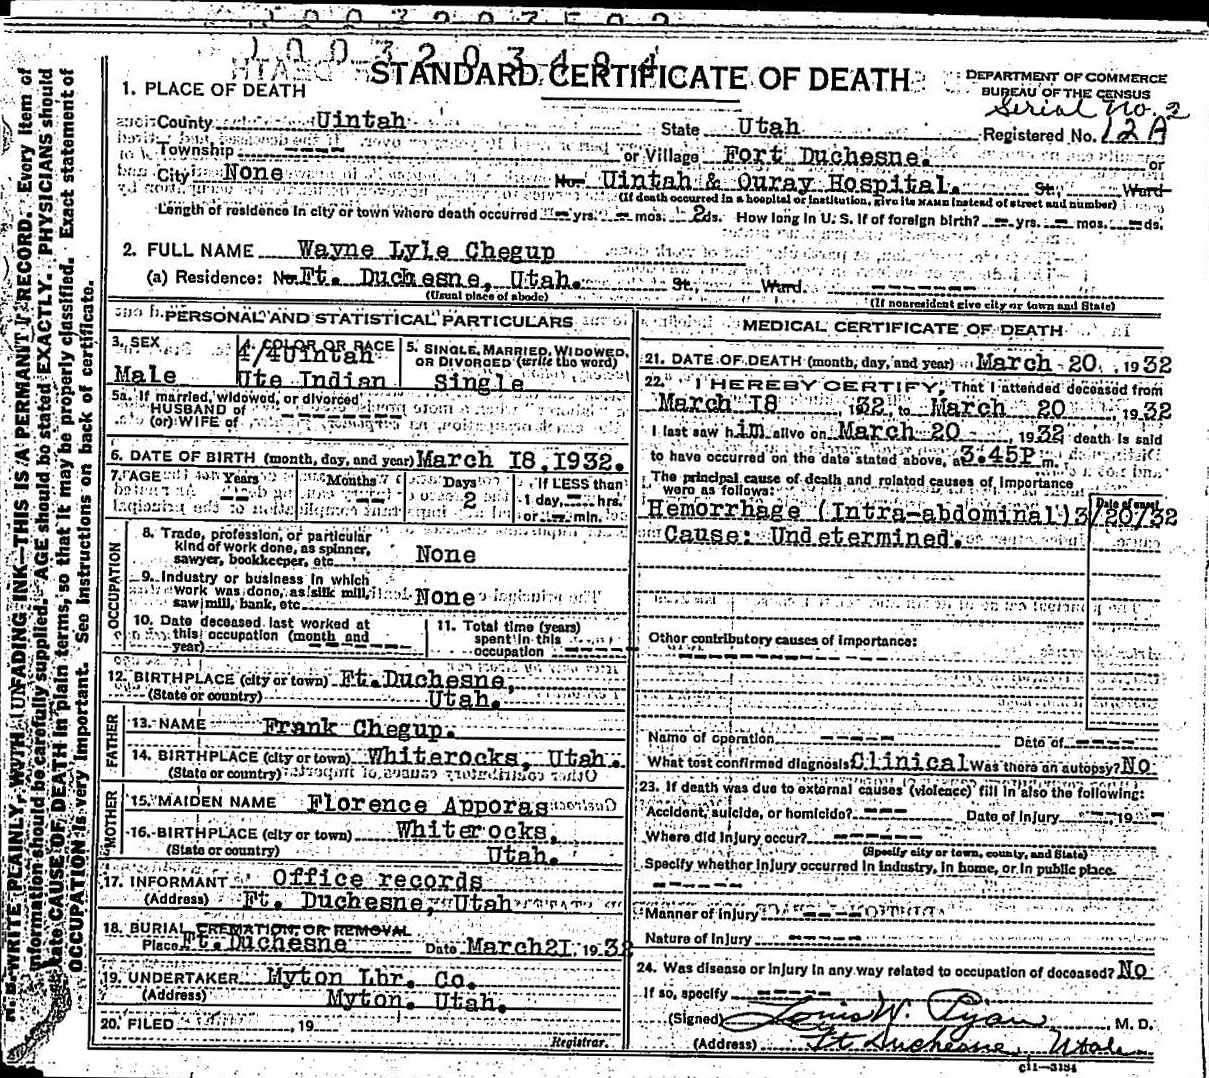 1003203494
STANDARD CERTIFICATE OF DEATH
DEPARTMENT OF COMMERCE
BUREAU OF THE CENSUS
Serial No. 2
1. PLACE OF DEATH
County Uintah State Utah Registered No. 12A
Township ---- or Village Fort Duchesne. or
City None No. Uintah & Ouray Hospital. St., Ward
(If death occurred in a hospital or institution, give its NAME instead of street and number)
Length of residence in city or town where death occurred -- yrs. -- mos. 2 ds. How long in U. S. if of foreign birth? -- yrs. -- mos. -- ds.
2. FULL NAME Wayne Lyle Chegup
(a) Residence: No. Ft. Duchesne, Utah. St., Ward. -------
(Usual place of abode) (If nonresident give city or town and State)
PERSONAL AND STATISTICAL PARTICULARS
3. SEX
Male
4. COLOR OR RACE
4/4 Uintah
Ute Indian
5. SINGLE, MARRIED, WIDOWED, OR DIVORCED (write the word)
Single
5a. If married, widowed, or divorced
HUSBAND of
(or) WIFE of -------
6. DATE OF BIRTH (month, day, and year) March 18, 1932.
7. AGE Years Months Days If LESS than
-- -- 2 1 day, -- hrs.
or -- min.
OCCUPATION
8. Trade, profession, or particular
kind of work done, as spinner,
sawyer, bookkeeper, etc. None
9. Industry or business in which
work was done, as silk mill,
saw mill, bank, etc. None
10. Date deceased last worked at
this occupation (month and
year) -------
11. Total time (years)
spent in this
occupation ------
12. BIRTHPLACE (city or town) Ft. Duchesne,
(State or country) Utah.
FATHER
13. NAME Frank Chegup.
14. BIRTHPLACE (city or town) Whiterocks, Utah.
(State or country)
MOTHER
15. MAIDEN NAME Florence Apporas
16. BIRTHPLACE (city or town) Whiterocks,
(State or country) Utah.
17. INFORMANT Office records
(Address) Ft. Duchesne, Utah
18. BURIAL, CREMATION, OR REMOVAL
Place Ft. Duchesne Date March 21, 1932
19. UNDERTAKER Myton Lbr. Co.
(Address) Myton, Utah.
20. FILED , 19
Registrar.
MEDICAL CERTIFICATE OF DEATH
21. DATE OF DEATH (month, day, and year) March 20, 1932
22. I HEREBY CERTIFY, That I attended deceased from
March 18 , 1932, to March 20 , 1932
I last saw him alive on March 20 , 1932 death is said
to have occurred on the date stated above, at 3:45P m.
The principal cause of death and related causes of importance
were as follows: Date of onset
Hemorrhage (Intra-abdominal) 3/20/32
Cause: Undetermined.
Other contributory causes of importance:
--------------
Name of operation ----- Date of -----
What test confirmed diagnosis Clinical Was there an autopsy? No
23. If death was due to external causes (violence) fill in also the following:
Accident, suicide, or homicide? --- Date of injury ---- 19 --
Where did injury occur? ------
(Specify city or town, county, and State)
Specify whether injury occurred in industry, in home, or in public place.
------
Manner of injury ----
Nature of injury -----
24. Was disease or injury in any way related to occupation of deceased? No
If so, specify -----
(Signed) Louis W. Ryan , M. D.
(Address) Ft Duchesne, Utah
c11—3184
N. B.—WRITE PLAINLY, WITH UNFADING INK—THIS IS A PERMANENT RECORD. Every item of
information should be carefully supplied. AGE should be stated EXACTLY. PHYSICIANS should
state CAUSE OF DEATH in plain terms, so that it may be properly classified. Exact statement of
OCCUPATION is very important. See instructions on back of certificate.